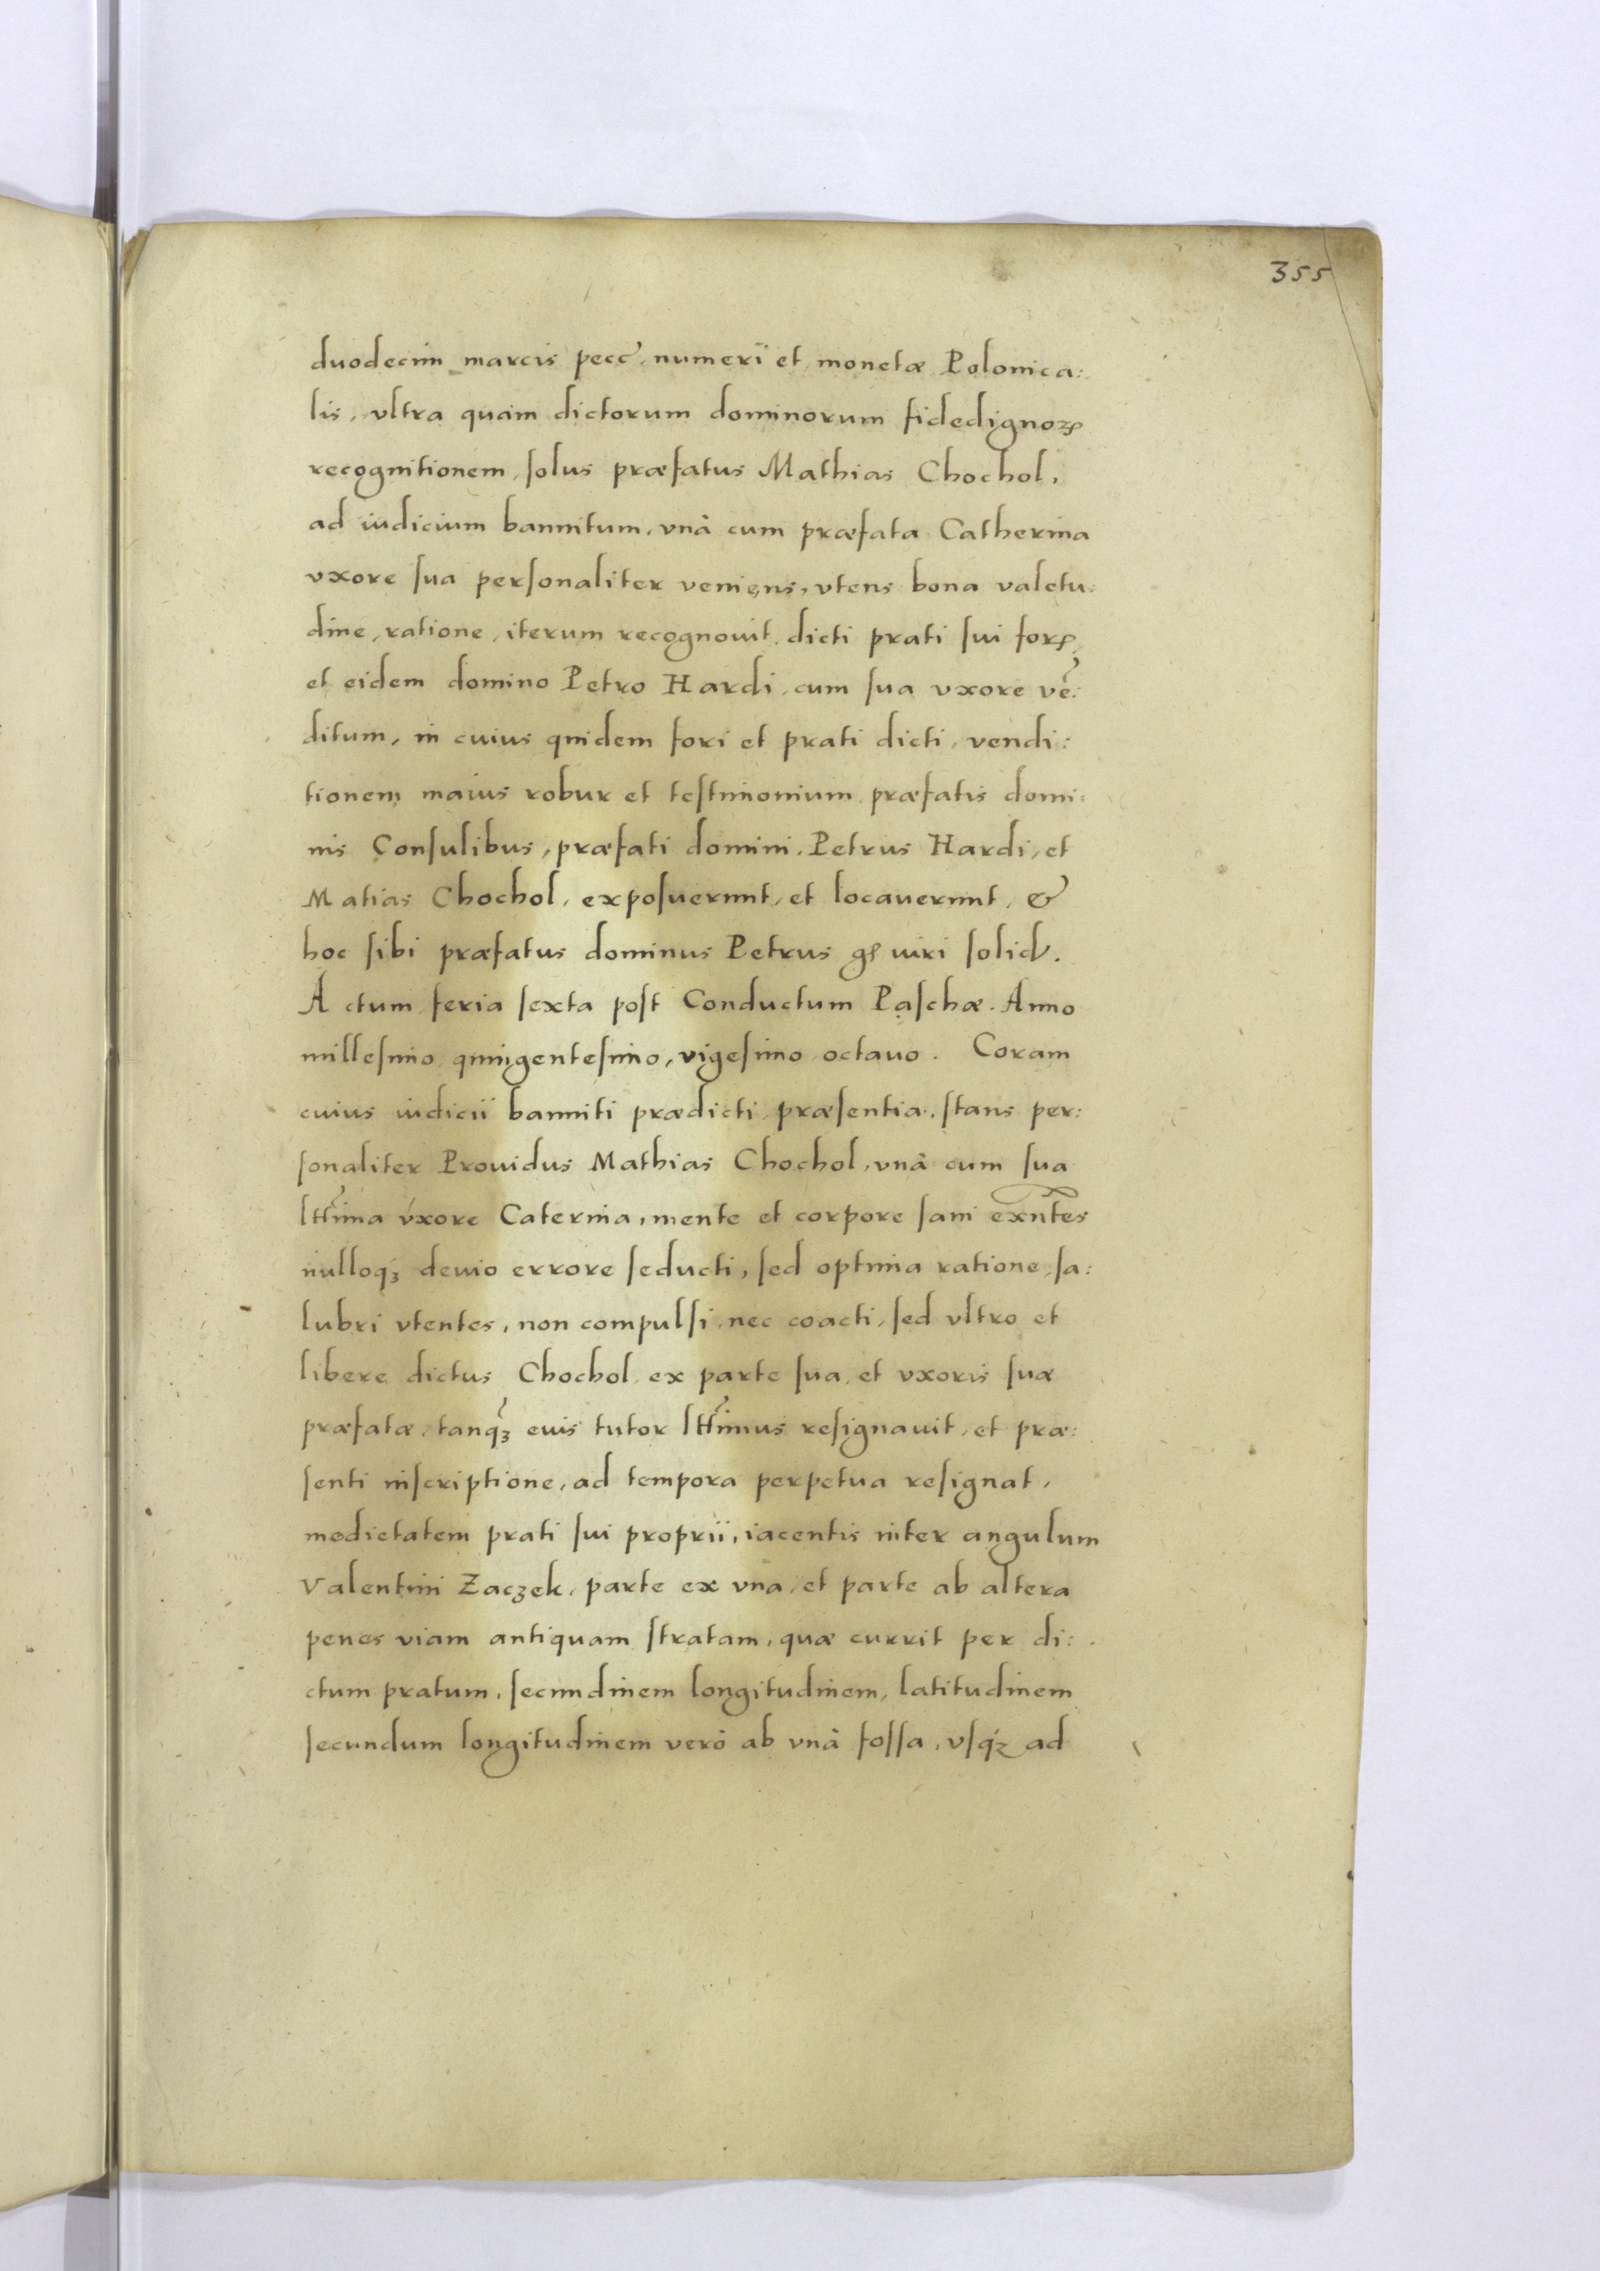 355
duodecim marcis pecc. numeri et monetæ Polonica:
lis, vltra quàm dictorum dominorum fidedignoꝝ
recognitionem, solus præfatus Mathias Chochol,
ad iudicium bannitum, vnà cum præfata Catherina
vxore sua personaliter veniens, vtens bona valetu:
dine, ratione, iterum recognouit dicti prati sui forꝝ
et eidem domino Petro Hardi, cum sua vxore vē:
ditum, in cuius quidem fori et prati dicti, vendi:
tionem maius robur et testimonium præfatis domi:
nis Consulibus, præfati domini. Petrus Hardi, et
Matias Chochol, exposuerunt, et locauerunt, &
hoc sibi præfatus dominus Petrus iuri solid.
Actum feria sexta post Conductum Paschæ. Anno
millesimo quingentesimo, vigesimo octauo. Coram
cuius iudicii banniti prædicti præsentia, stans per:
sonaliter Prouidus Mathias Chochol, vnà cum sua
lttima vxore Caterina, mente et corpore sani exntes
nulloqꝫ deuio errore seducti, sed optima ratione, sa:
lubri vtentes, non compulsi nec coacti, sed vltro et
libere dictus Chochol ex parte sua, et vxoris suæ
præfatæ, tanqꝫ euis tutor lttimus resignauit, et præ:
senti inscriptione, ad tempora perpetua resignat,
medietatem prati sui proprii, iacentis inter angulum
Valentini Zaczek, parte ex vna, et parte ab altera
penes viam antiquam stratam, quæ currit per di:
ctum pratum, secundinem longitudinem, latitudinem
secundum longitudinem verò ab vnà fossa, vsqꝫ ad